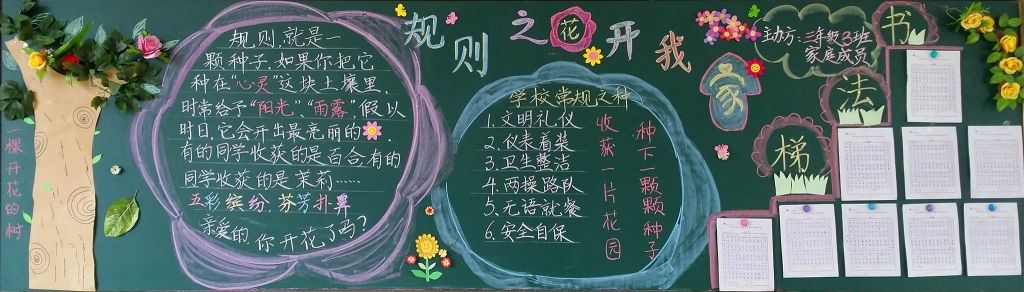 一棵开花的树
规则,就是一
颗种子.如果你把它
种在“心灵”这块土壤里,
时常给予“阳光”、“雨露”,假以
时日,它会开出最亮丽的
有的同学收获的是百合,有的
同学收获的是茉莉……
五彩缤纷,芬芳扑鼻
亲爱的,你开花了吗?
规则之花开我家
学校常规之种
1.文明礼仪
2.仪表着装
3.卫生整洁
4.两操路队
5.无语就餐
6.安全自保
收获一片花园
种下一颗颗种子
主办方:三年级3班
家庭成员
书
法
梯